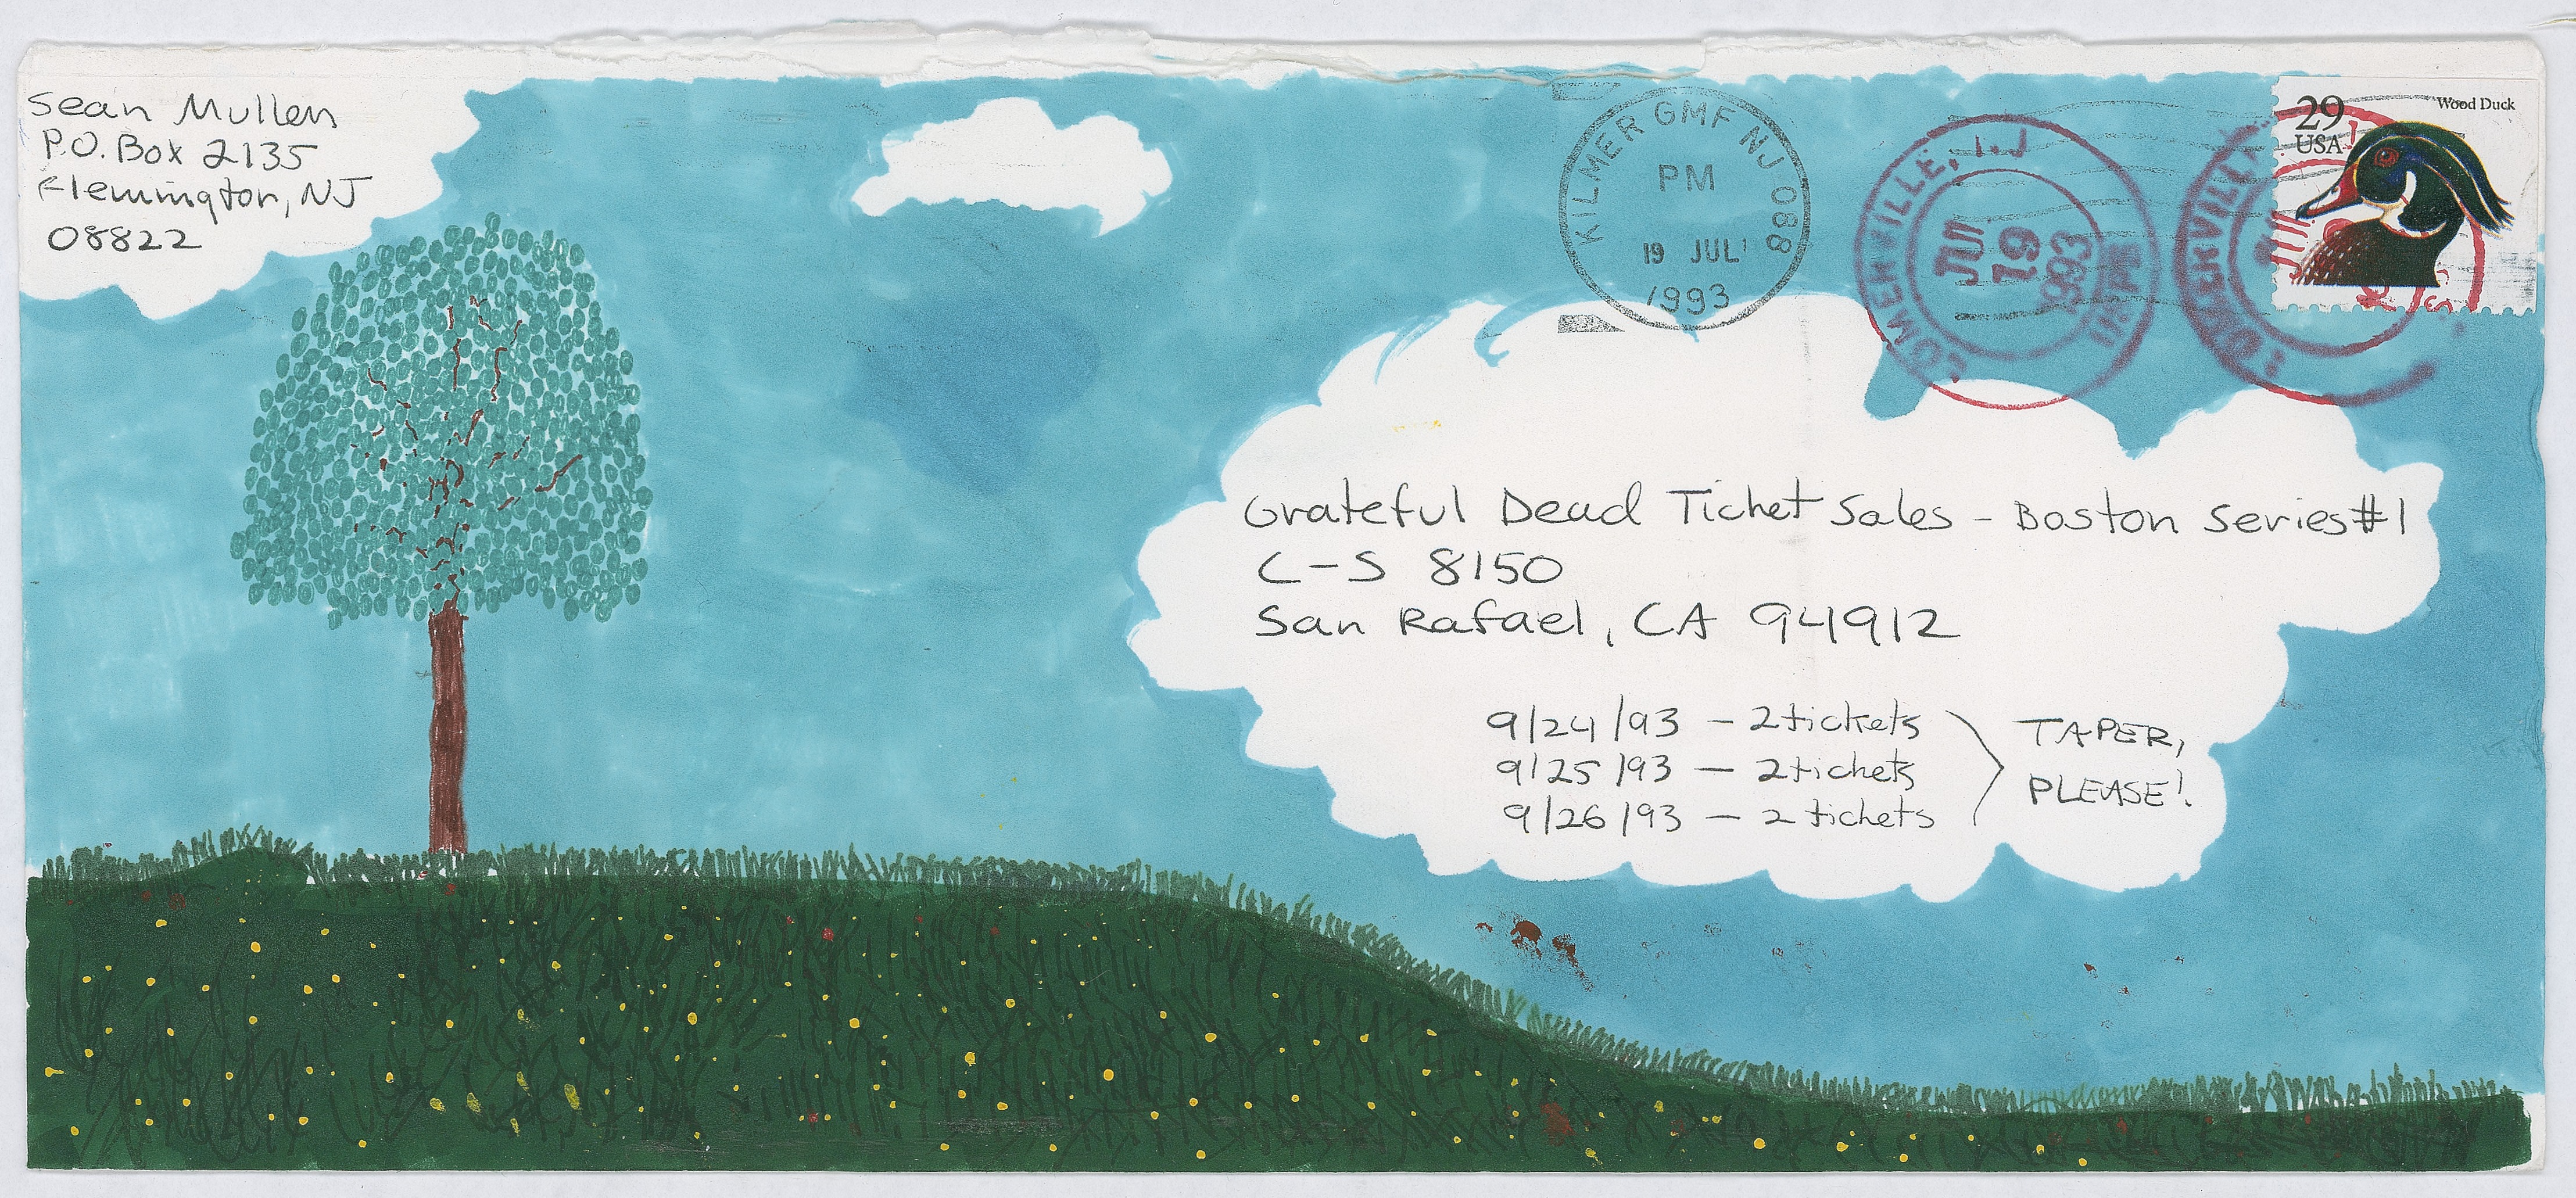 Sean Mullen
P.O. Box 2135
Flemington, NJ
08822
KILMER GMF NJ 088
PM
19 JUL
1993
SOMERVILLE, N.J.
JUL
19
1993
USPM
29
USA
Wood Duck
Grateful Dead Ticket Sales - Boston Series #1
C-S 8150
San Rafael, CA 94912
9/24/93 - 2 tickets
9/25/93 - 2 tickets
9/26/93 - 2 tickets
TAPER,
PLEASE!